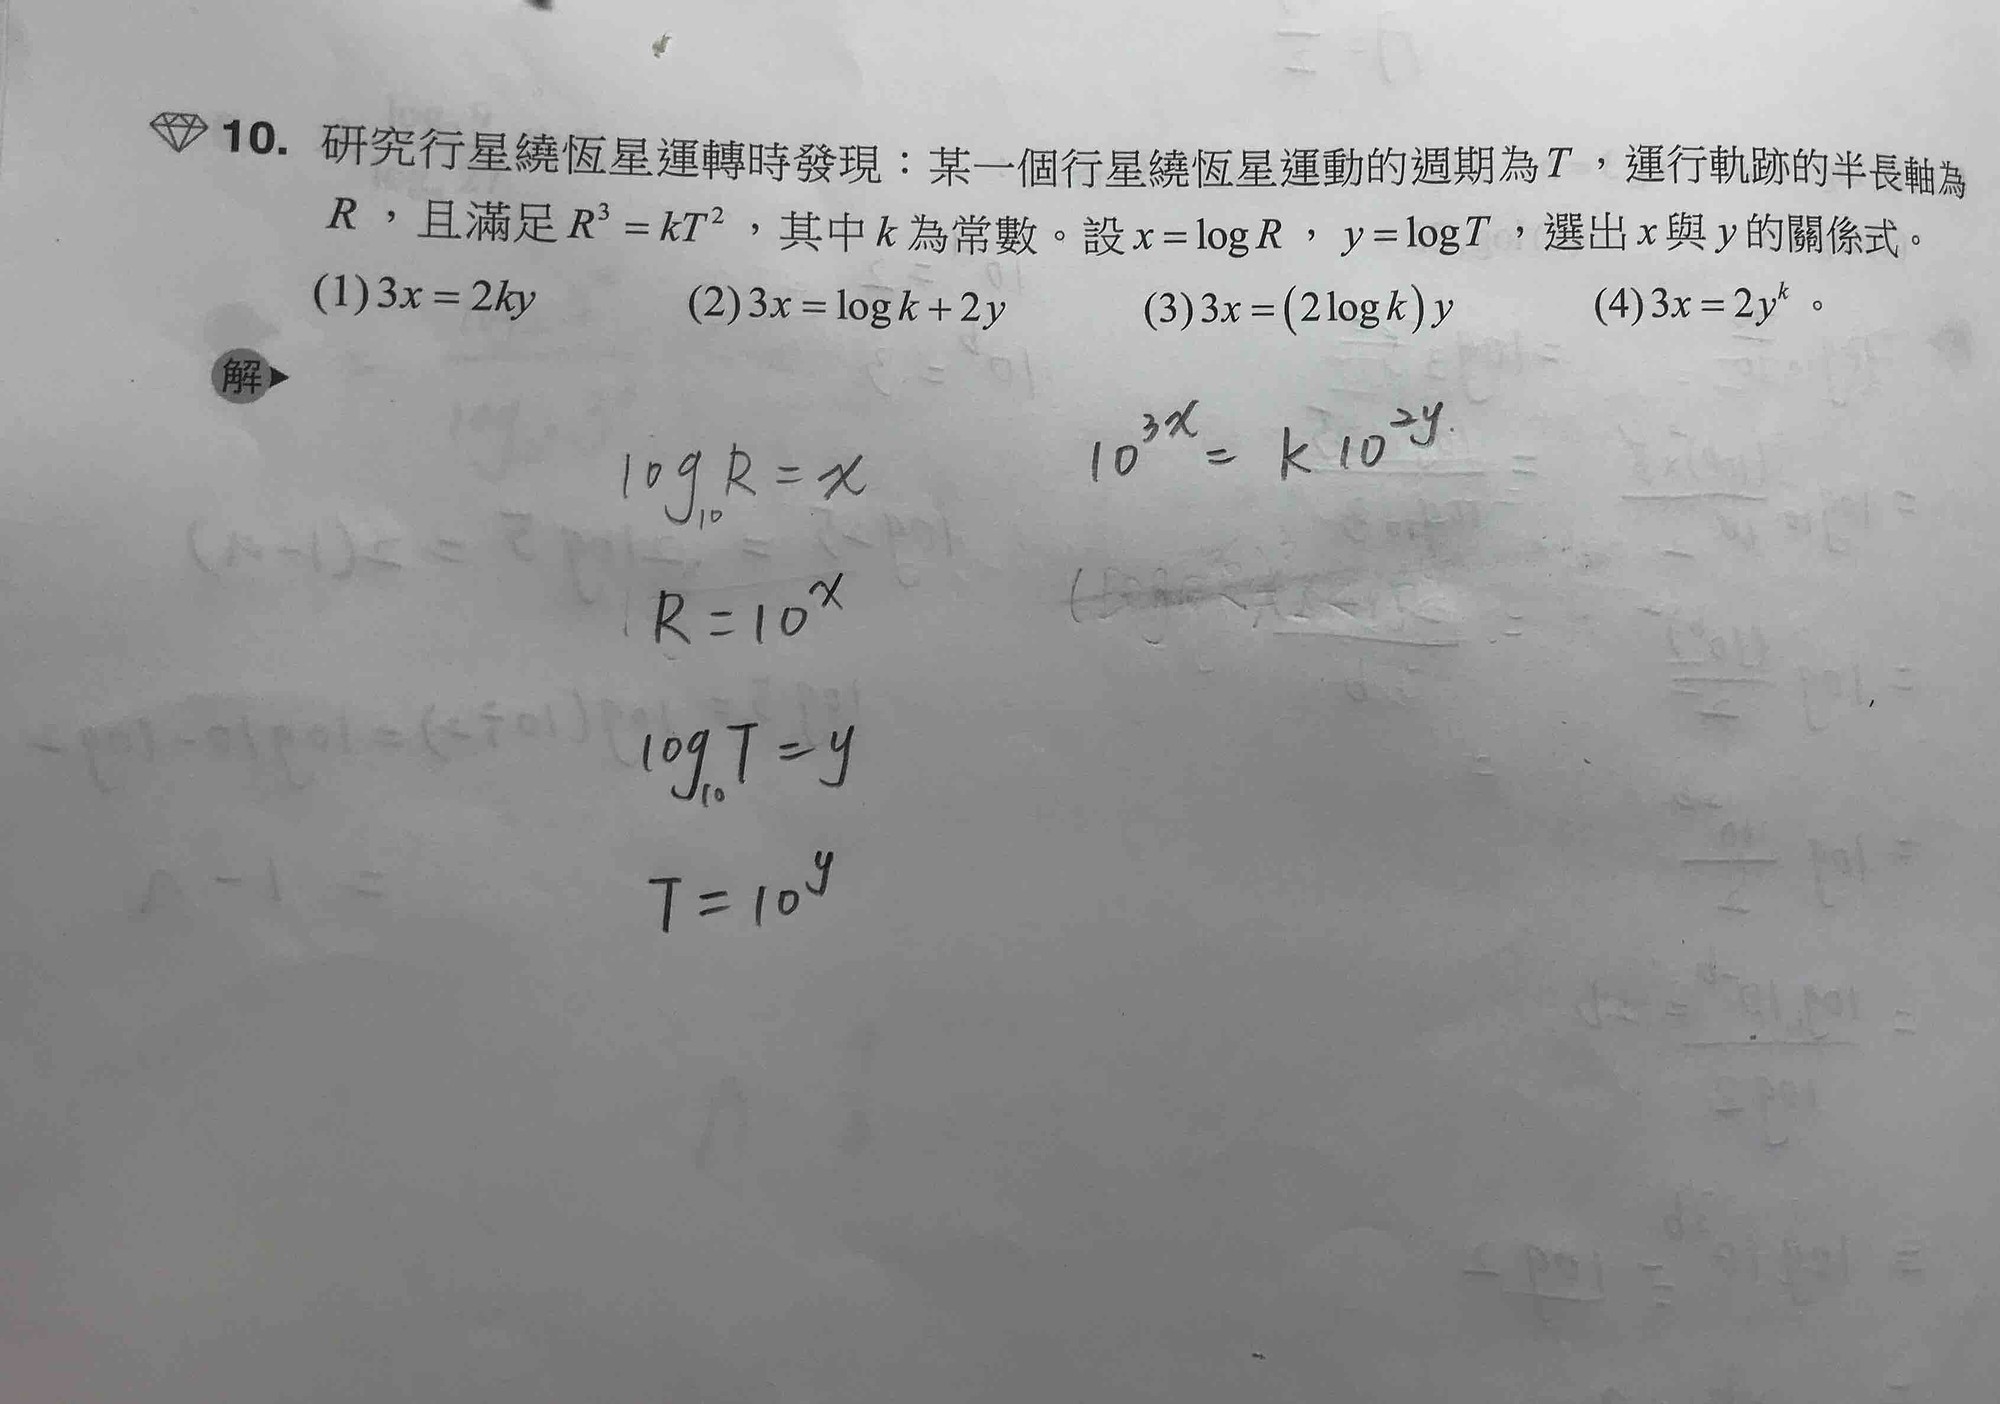 10. 研究行星繞恆星運轉時發現：某一個行星繞恆星運動的週期為T，運行軌跡的半長軸為
R，且滿足R³ = kT²，其中k為常數。設x = log R，y = log T，選出x與y的關係式。
(1) 3x = 2ky (2) 3x = log k + 2y (3) 3x = (2 log k) y (4) 3x = 2y^k。
解
log₁₀R = x
R = 10^x
log₁₀T = y
T = 10^y
10^{3x} = k 10^{2y}